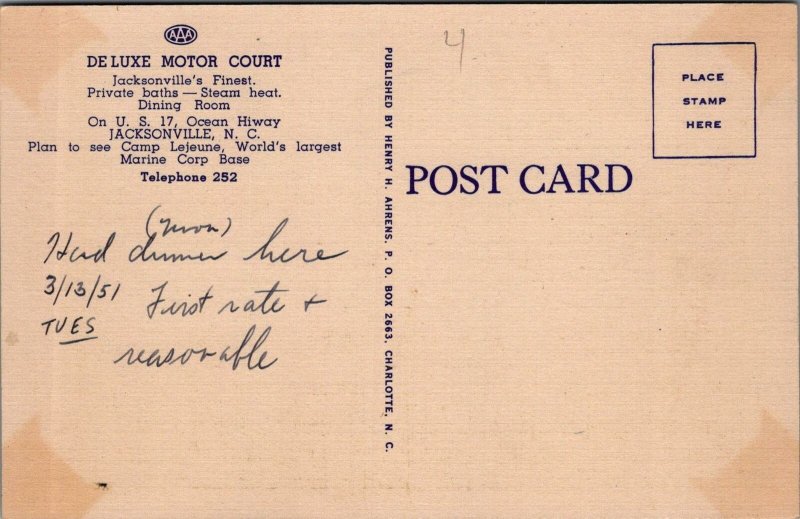 AAA
DE LUXE MOTOR COURT
Jacksonville's Finest.
Private baths — Steam heat.
Dining Room
On U. S. 17, Ocean Hiway
JACKSONVILLE, N. C.
Plan to see Camp Lejeune, World's largest
Marine Corp Base
Telephone 252
(noon)
Had dinner here
3/13/51 First rate +
TUES
reasonable
PUBLISHED BY HENRY H. AHRENS, P. O. BOX 2663, CHARLOTTE, N. C.
4
POST CARD
PLACE
STAMP
HERE